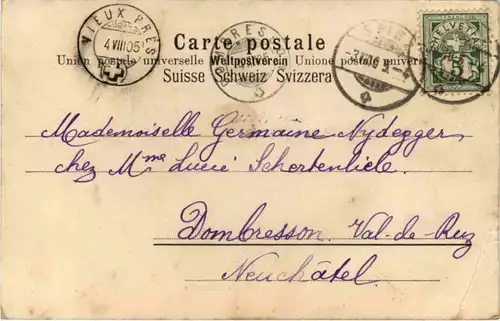 VIEUX PRÉS
4 VIII 05
Carte postale
Union postale universelle Weltpostverein Unione postale univers
Suisse Schweiz Svizzera
HELVETIA
5
Mademoiselle Germaine Nydegger
chez Mme Lucie Schertenlieb
Dombresson. Val-de-Ruz
Neuchâtel